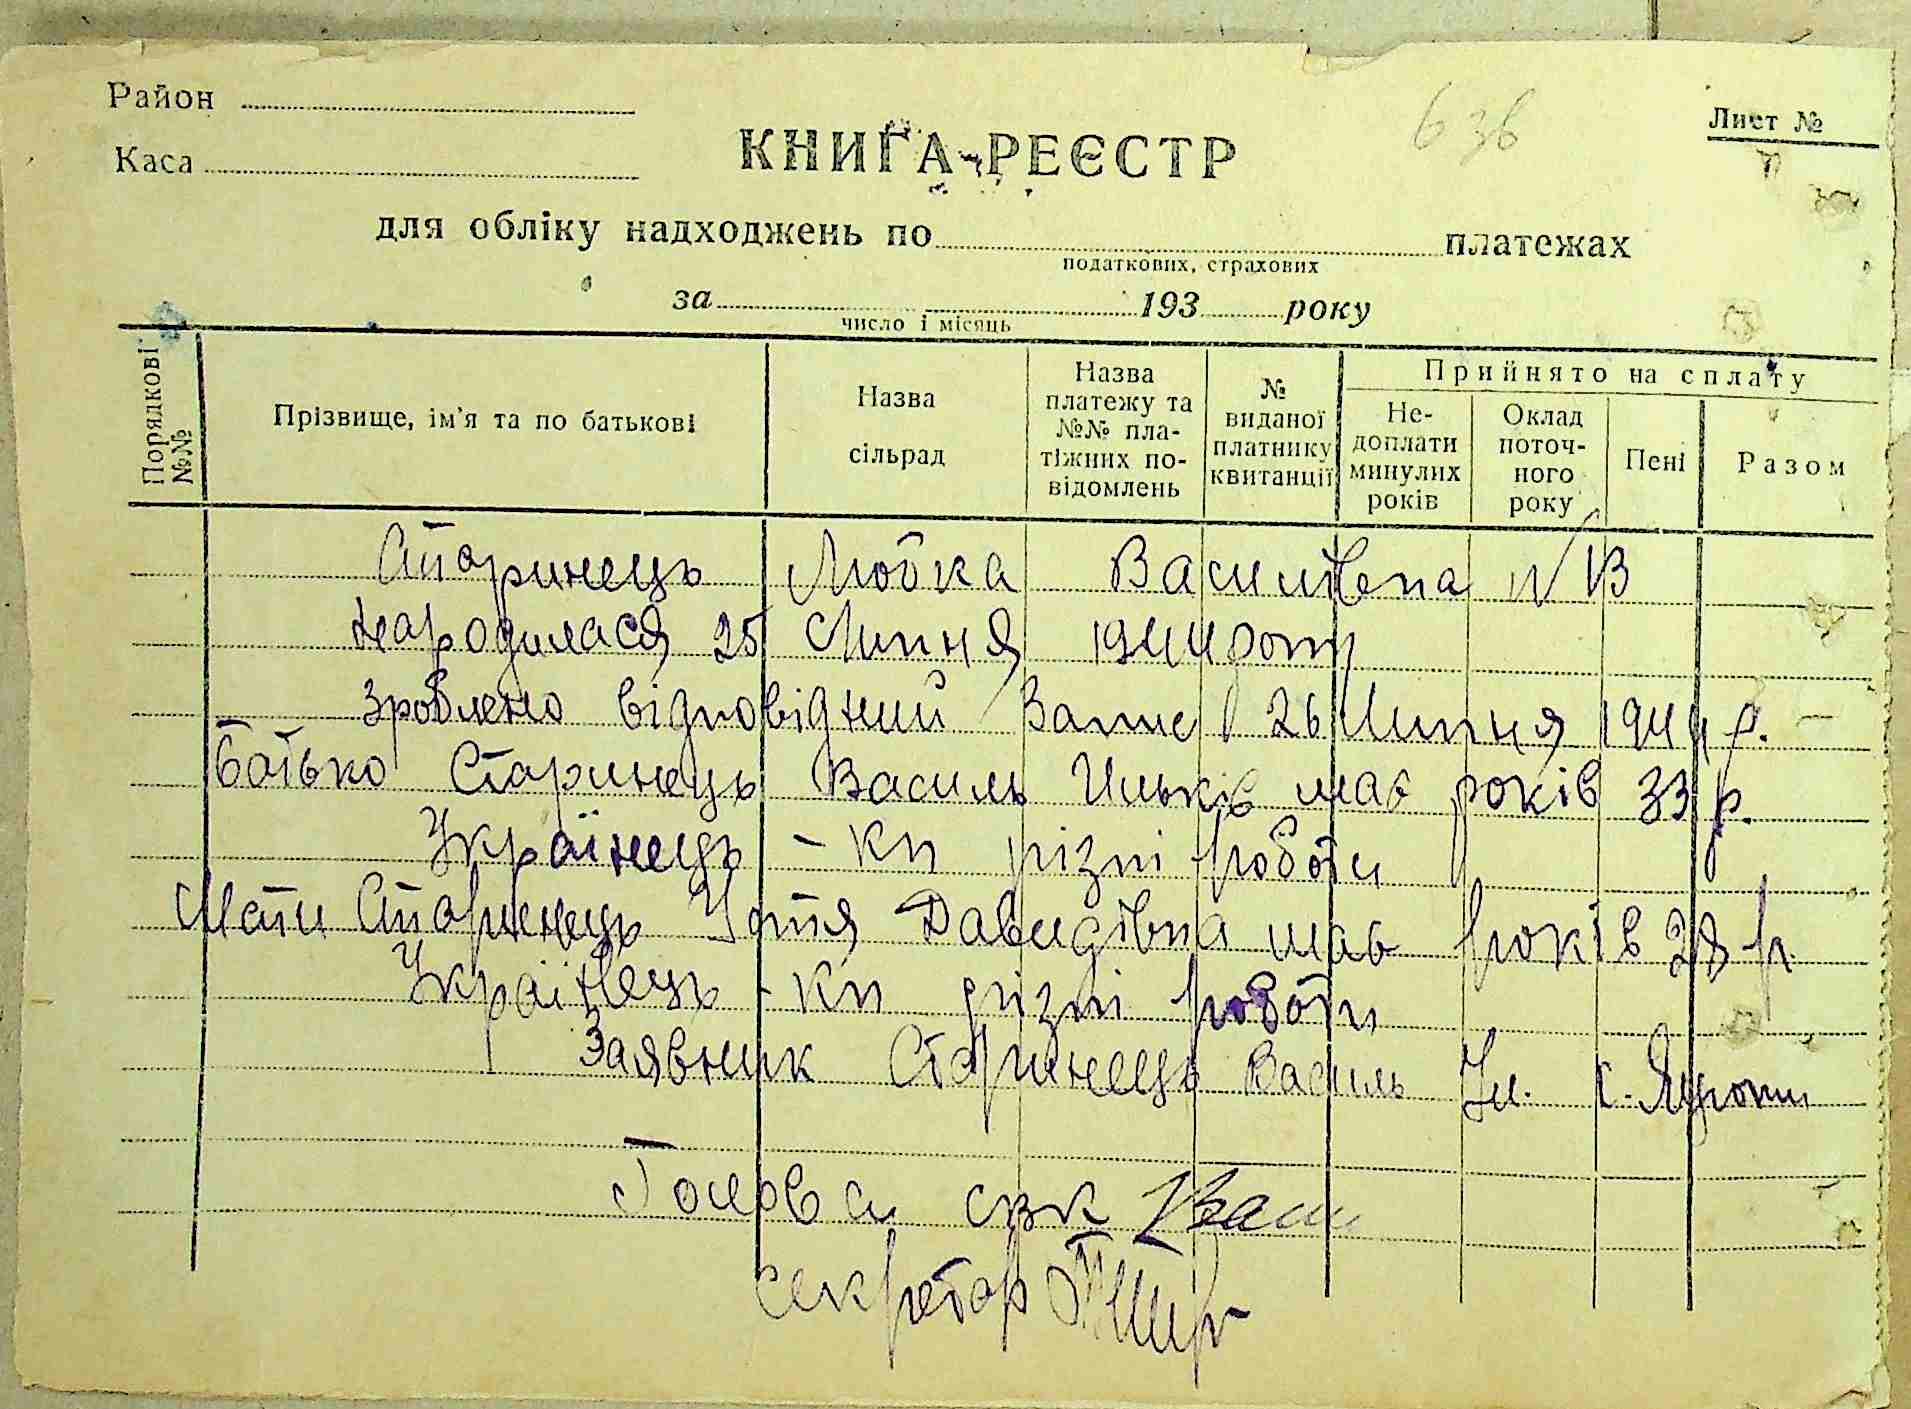 Район
636
Лист №
Каса
КНИГА-РЕЄСТР
для обліку надходжень по платежах
податкових, страхових
за 193 року
число і місяць
Порядкові №№
Прізвище, ім'я та по батькові
Назва сільрад
Назва платежу та №№ платіжних повідомлень
№ виданої платнику квитанції
Прийнято на сплату
Недоплати минулих років
Оклад поточного року
Пені
Разом
Старинець Любка Василівна
народилася 25 Липня 1944 року
зроблено відповідний Запис 26 Липня 1944 р.
Батько Старинець Василь Ильків має років 33 р.
Українець - кп різні роботи
Мати Старинець Устя Давидівна має років 28 р.
Українець - кп різні роботи
Заявник Старинець Василь Іл. с.
Голова свк
секретар